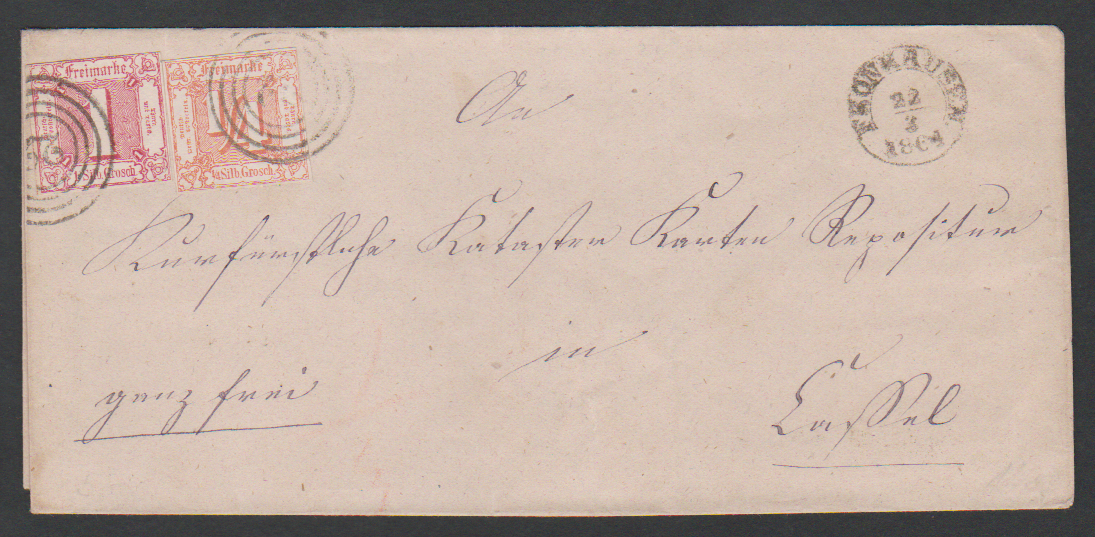 Freimarke Freimarke
1/2 Silb. Grosch 1/4 Silb. Grosch
FRONHAUSEN
22
3
1864
An
Kurfürstliche Kataster Karten Repositur
in
Cassel
ganz frei